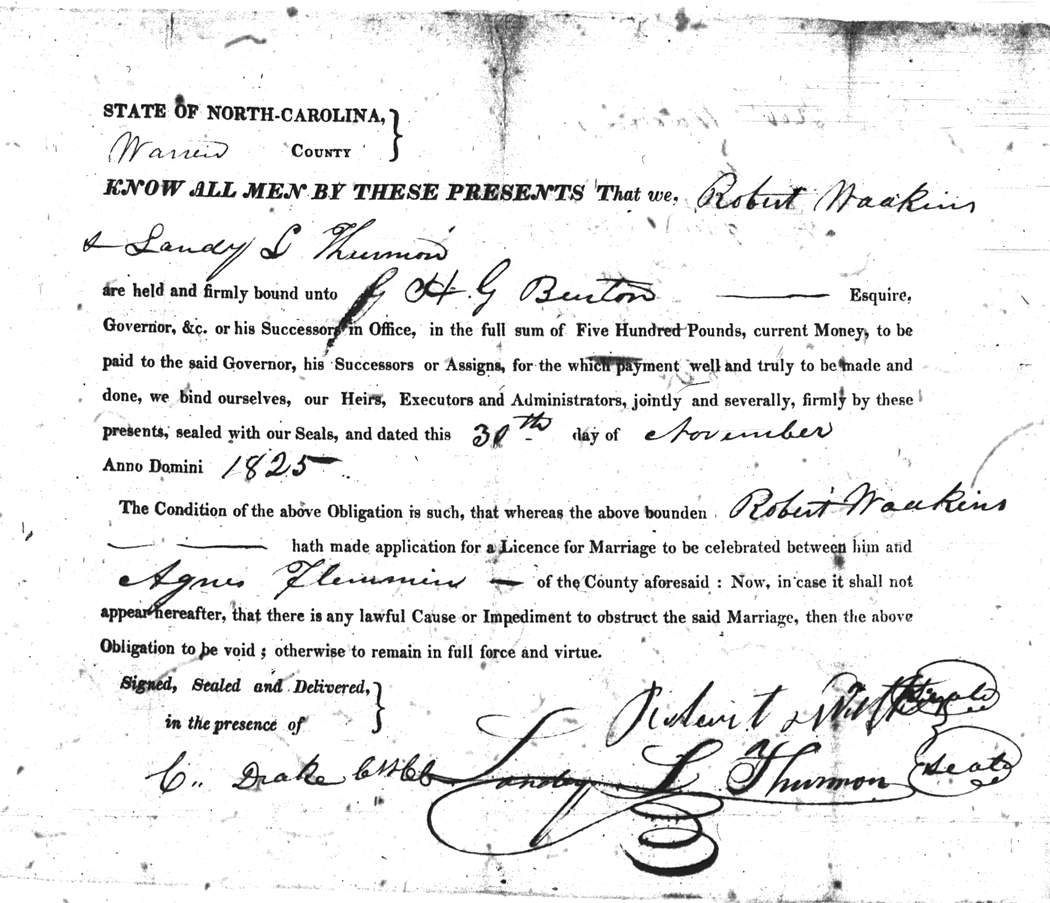 STATE OF NORTH-CAROLINA,
Warren COUNTY
KNOW ALL MEN BY THESE PRESENTS That we, Robert Waakins
& Landy L Thurmon
are held and firmly bound unto H. G Burton Esquire,
Governor, &c. or his Successors in Office, in the full sum of Five Hundred Pounds, current Money, to be
paid to the said Governor, his Successors or Assigns, for the which payment well and truly to be made and
done, we bind ourselves, our Heirs, Executors and Administrators, jointly and severally, firmly by these
presents, sealed with our Seals, and dated this 30th day of November
Anno Domini 1825
The Condition of the above Obligation is such, that whereas the above bounden Robert Waakins
hath made application for a Licence for Marriage to be celebrated between him and
Agnes Flemmin of the County aforesaid : Now, in case it shall not
appear hereafter, that there is any lawful Cause or Impediment to obstruct the said Marriage, then the above
Obligation to be void ; otherwise to remain in full force and virtue.
Signed, Sealed and Delivered,
in the presence of
Robert seal
C. Drake Landy L Thurmon seal